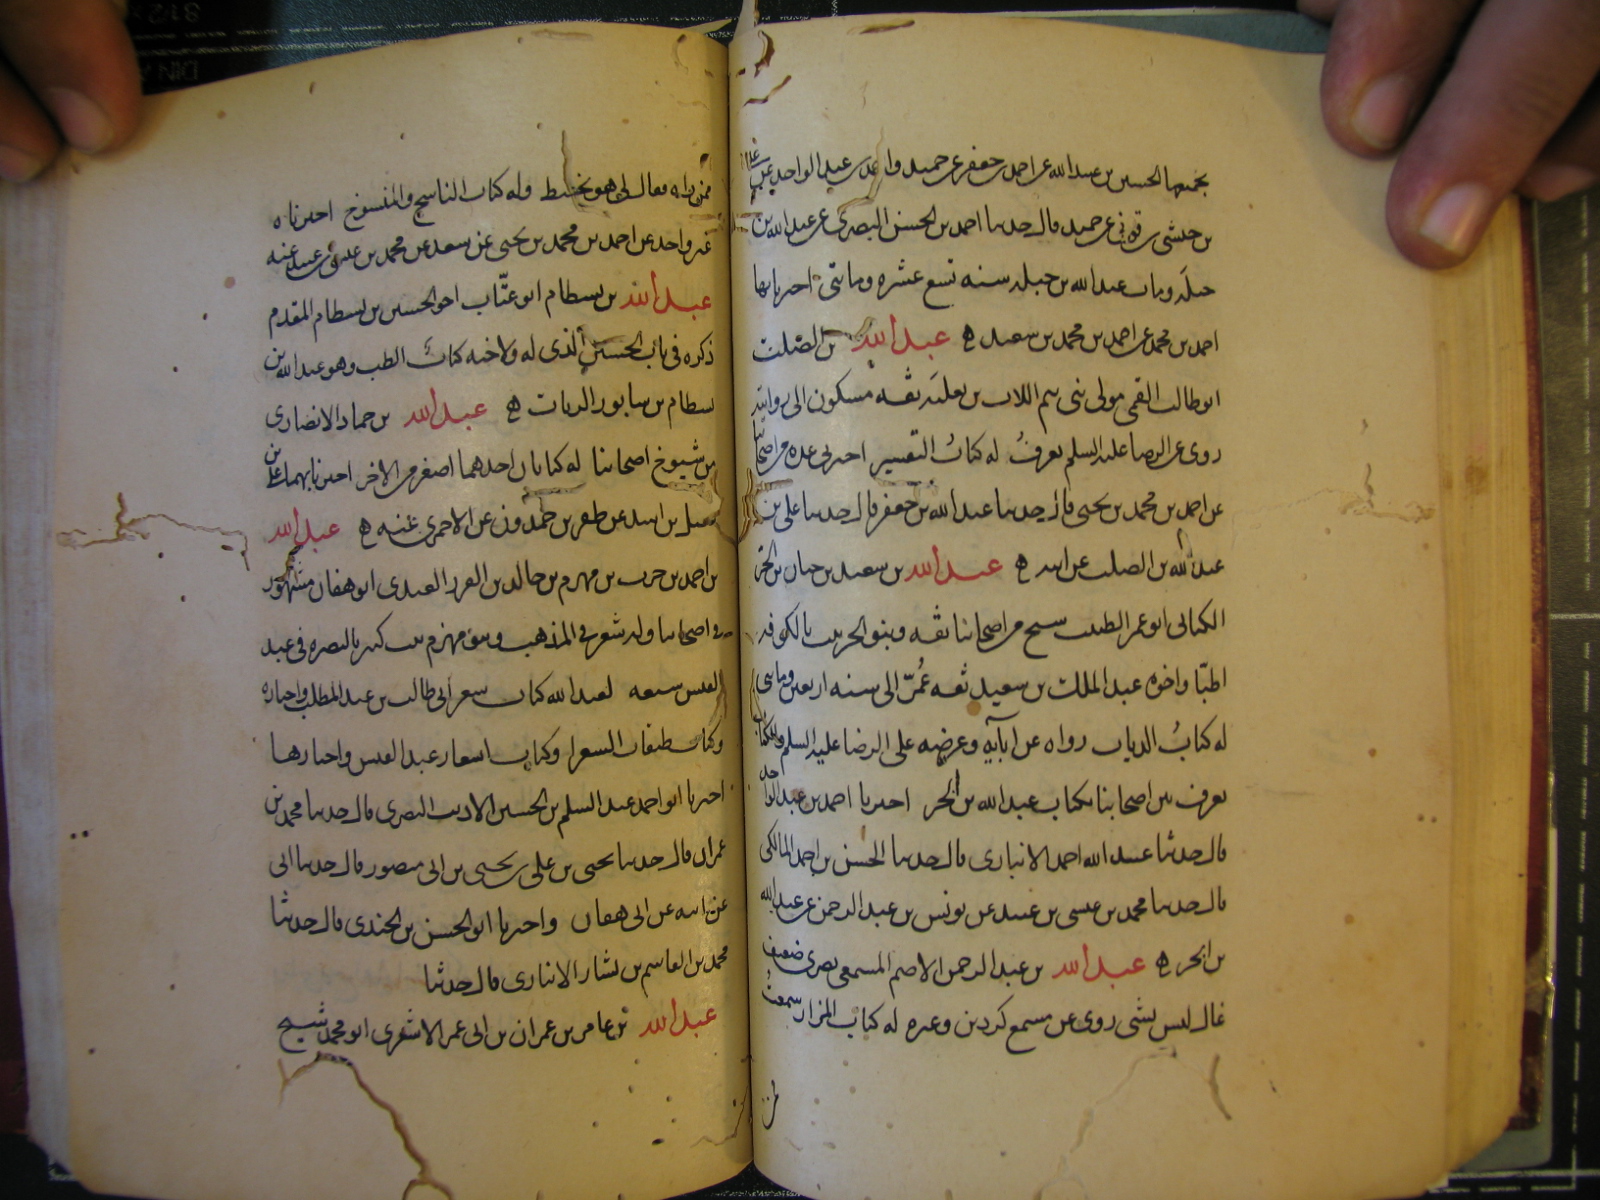 بجميعها الحسين بن عبيد الله عن احمد بن جعفر عن حميد واحمد بن عبد الواحد عن على
بن حبشى بن قونى عن حميد قال حدثنا احمد بن الحسن البصرى عن عبد الله بن
جبله ومات عبد الله بن جبله سنه تسع عشره ومائتى اخبرنا بها
احمد بن محمد عن احمد بن محمد بن سعيد ه عبد الله بن الصلت
ابو طالب القمى مولى بنى تيم اللات بن ثعلبه ثقه مسكون الى روايته
روى عن الرضا عليه السلم يعرف له كتاب التفسير اخبرنى عده من اصحابنا
عن احمد بن محمد بن يحيى قال حدثنا عبد الله بن جعفر قال حدثنا على بن
عبد الله بن الصلت عن ابيه ه عبد الله بن سعيد بن حيان بن الحر
الكنانى ابو عمر الطبيب شيخ من اصحابنا ثقه وبنو الحر بيت بالكوفه
اطبا واخوه عبد الملك بن سعيد ثقه عمر الى سنه اربعين ومايتى
له كتاب الديات رواه عن آبايه وعرضه على الرضا عليه السلم والكتاب
يعرف بين اصحابنا بكتاب عبد الله بن الحر اخبرنا احمد بن عبد الواحد
قال حدثنا عبيد الله احمد الانبارى قال حدثنا الحسن بن احمد المالكى
قال حدثنا محمد بن عيسى بن عبيد عن يونس بن عبد الرحمن عن عبد الله
بن ابحر ه عبد الله بن عبد الرحمن الاصم المسمعى بصرى ضعيف
غال ليس بشى روى عن مسمع كردين وغيره له كتاب المزار سمعت
ممن رآه فقال لى هو تخليط وله كتاب الناسخ والمنسوخ اخبرناه
غير واحد عن احمد بن محمد بن يحيى عن سعد عن محمد بن عيسى بن عبيد عنه
عبد الله بن بسطام ابو عتّاب اخو الحسين بن بسطام المقدم
ذكره فى باب الحسين الذى له ولاخيه كتاب الطب وهو عبد الله بن
بسطام بن سابور الزيات ه عبد الله بن حماد الانصارى
من شيوخ اصحابنا له كتابان احدهما اصغر من الاخر اخبرنا بهما على بن
شبل بن اسد عن ظفر بن حمدون عن الاحمرى عنه ه عبد الله
بن احمد بن حرب بن مهزم بن خالد بن الفزر العبدى ابو هفان مشهور
فى اصحابنا وله شعر فى المذهب وبنو مهزم بيت كبير بالبصره فى عبد
القيس شيعه لعبد الله كتاب شعر ابى طالب بن عبد المطلب واخباره
وكتاب طبقات الشعرا وكتاب اشعار عبد القيس واخبارها
اخبرنا ابو احمد عبد السلم بن الحسين الاديب البصرى قال حدثنا محمد بن
عمران قال حدثنا يحيى بن على بن يحيى بن ابى منصور قال حدثنا ابى
عن ابيه عن ابى هفان واخبرنا ابو الحسن بن الجندى قال حدثنا
محمد بن القاسم بن بشار الانبارى قال حدثنا
عبد الله بن عامر بن عمران بن ابى عمر الاشعرى ابو محمد شيخ